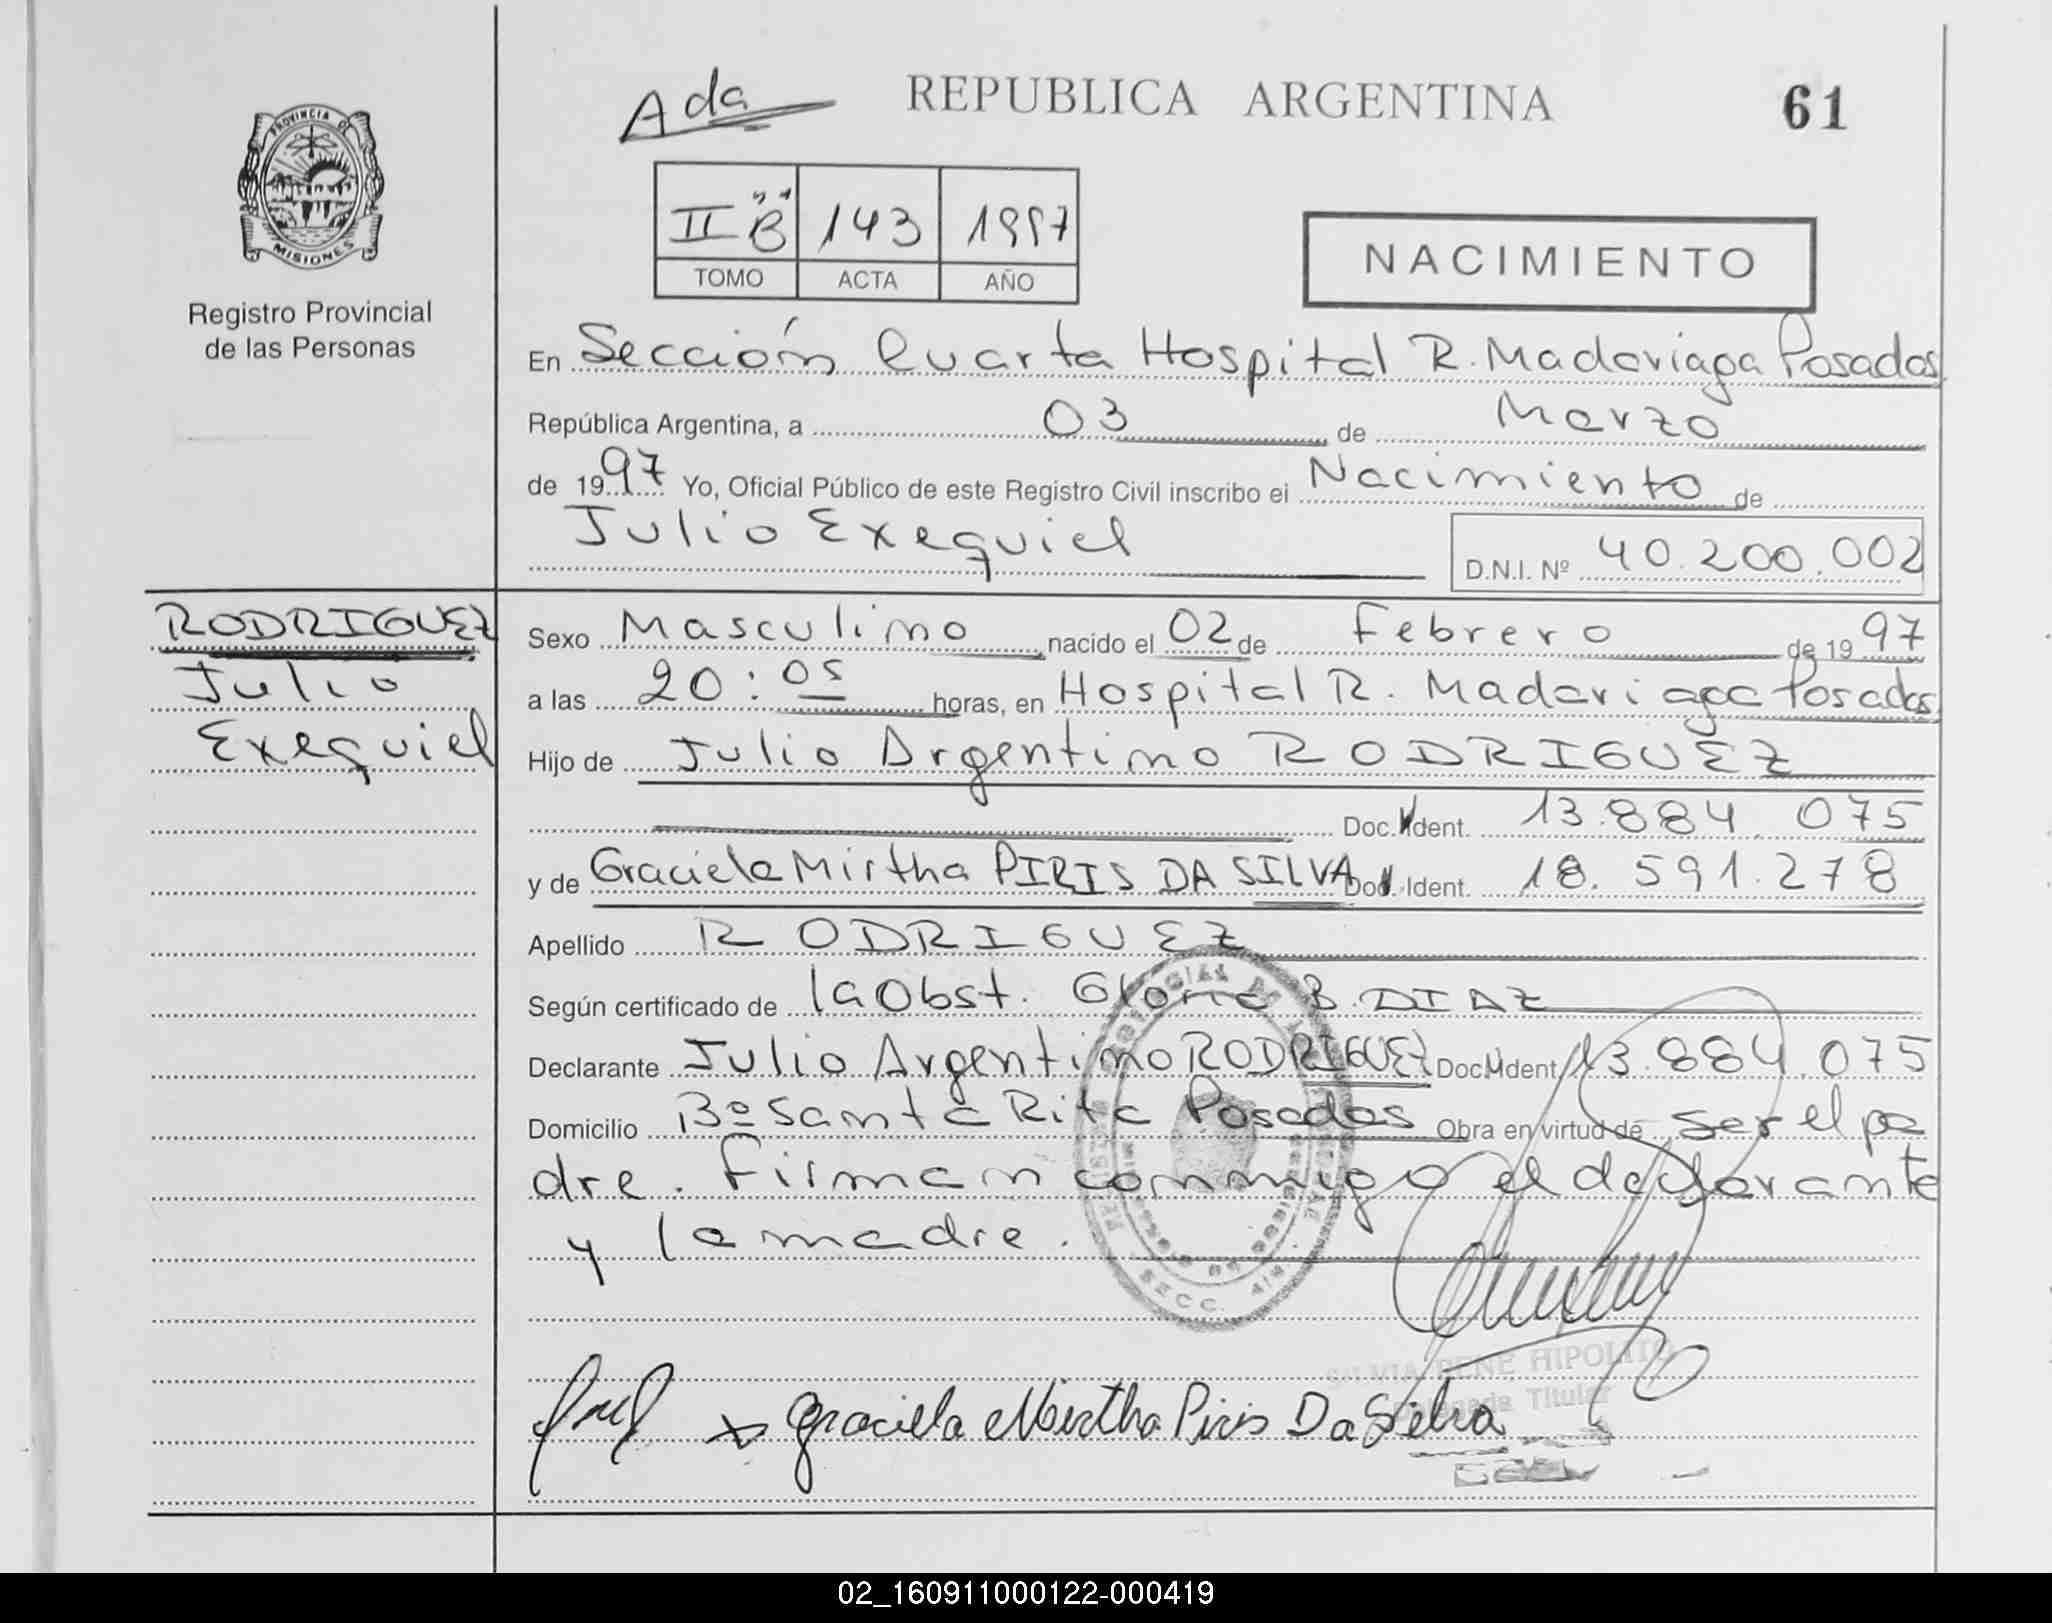 Ada
REPUBLICA ARGENTINA
61
PROVINCIA DE
MISIONES
Registro Provincial
de las Personas
II "B" 143 1997
TOMO ACTA AÑO
NACIMIENTO
En Sección Cuarta Hospital R. Madariaga Posadas
República Argentina, a 03 de Marzo
de 1997 Yo, Oficial Público de este Registro Civil inscribo el Nacimiento de
Julio Exequiel
D.N.I. Nº 40.200.002
RODRIGUEZ
Julio
Exequiel
Sexo Masculino nacido el 02 de Febrero de 1997
a las 20:05 horas, en Hospital R. Madariaga Posadas
Hijo de Julio Argentino RODRIGUEZ
Doc. Ident. 13.884.075
y de Graciela Mirtha PIRIS DA SILVA Doc. Ident. 18.591.278
Apellido RODRIGUEZ
Según certificado de la Obst. Gloria B. DIAZ
Declarante Julio Argentino RODRIGUEZ Doc. Ident. 13.884.075
Domicilio Bº Santa Rita Posadas Obra en virtud de ser el pa
dre. Firman conmigo el declarante
y la madre.
SECC. 4ª
SILVIA RENE HIPOLITO
Delegada Titular
x Graciela Mirtha Piris Da Silva
02_160911000122-000419